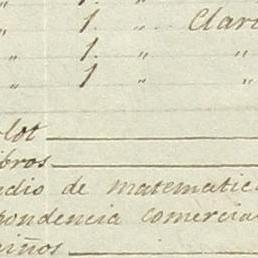 " 1. " Clar
" 1. "
" 1. " "
" 1 " "
lot
bros
dio de matematic
pondencia comercia
iños